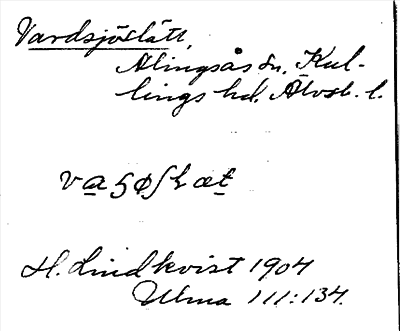 Vardsjöslätt,
Alingsås sn. Kul-
lings hd. Älvsb. l.
H. Lindkvist 1904
Ulma 111:134.